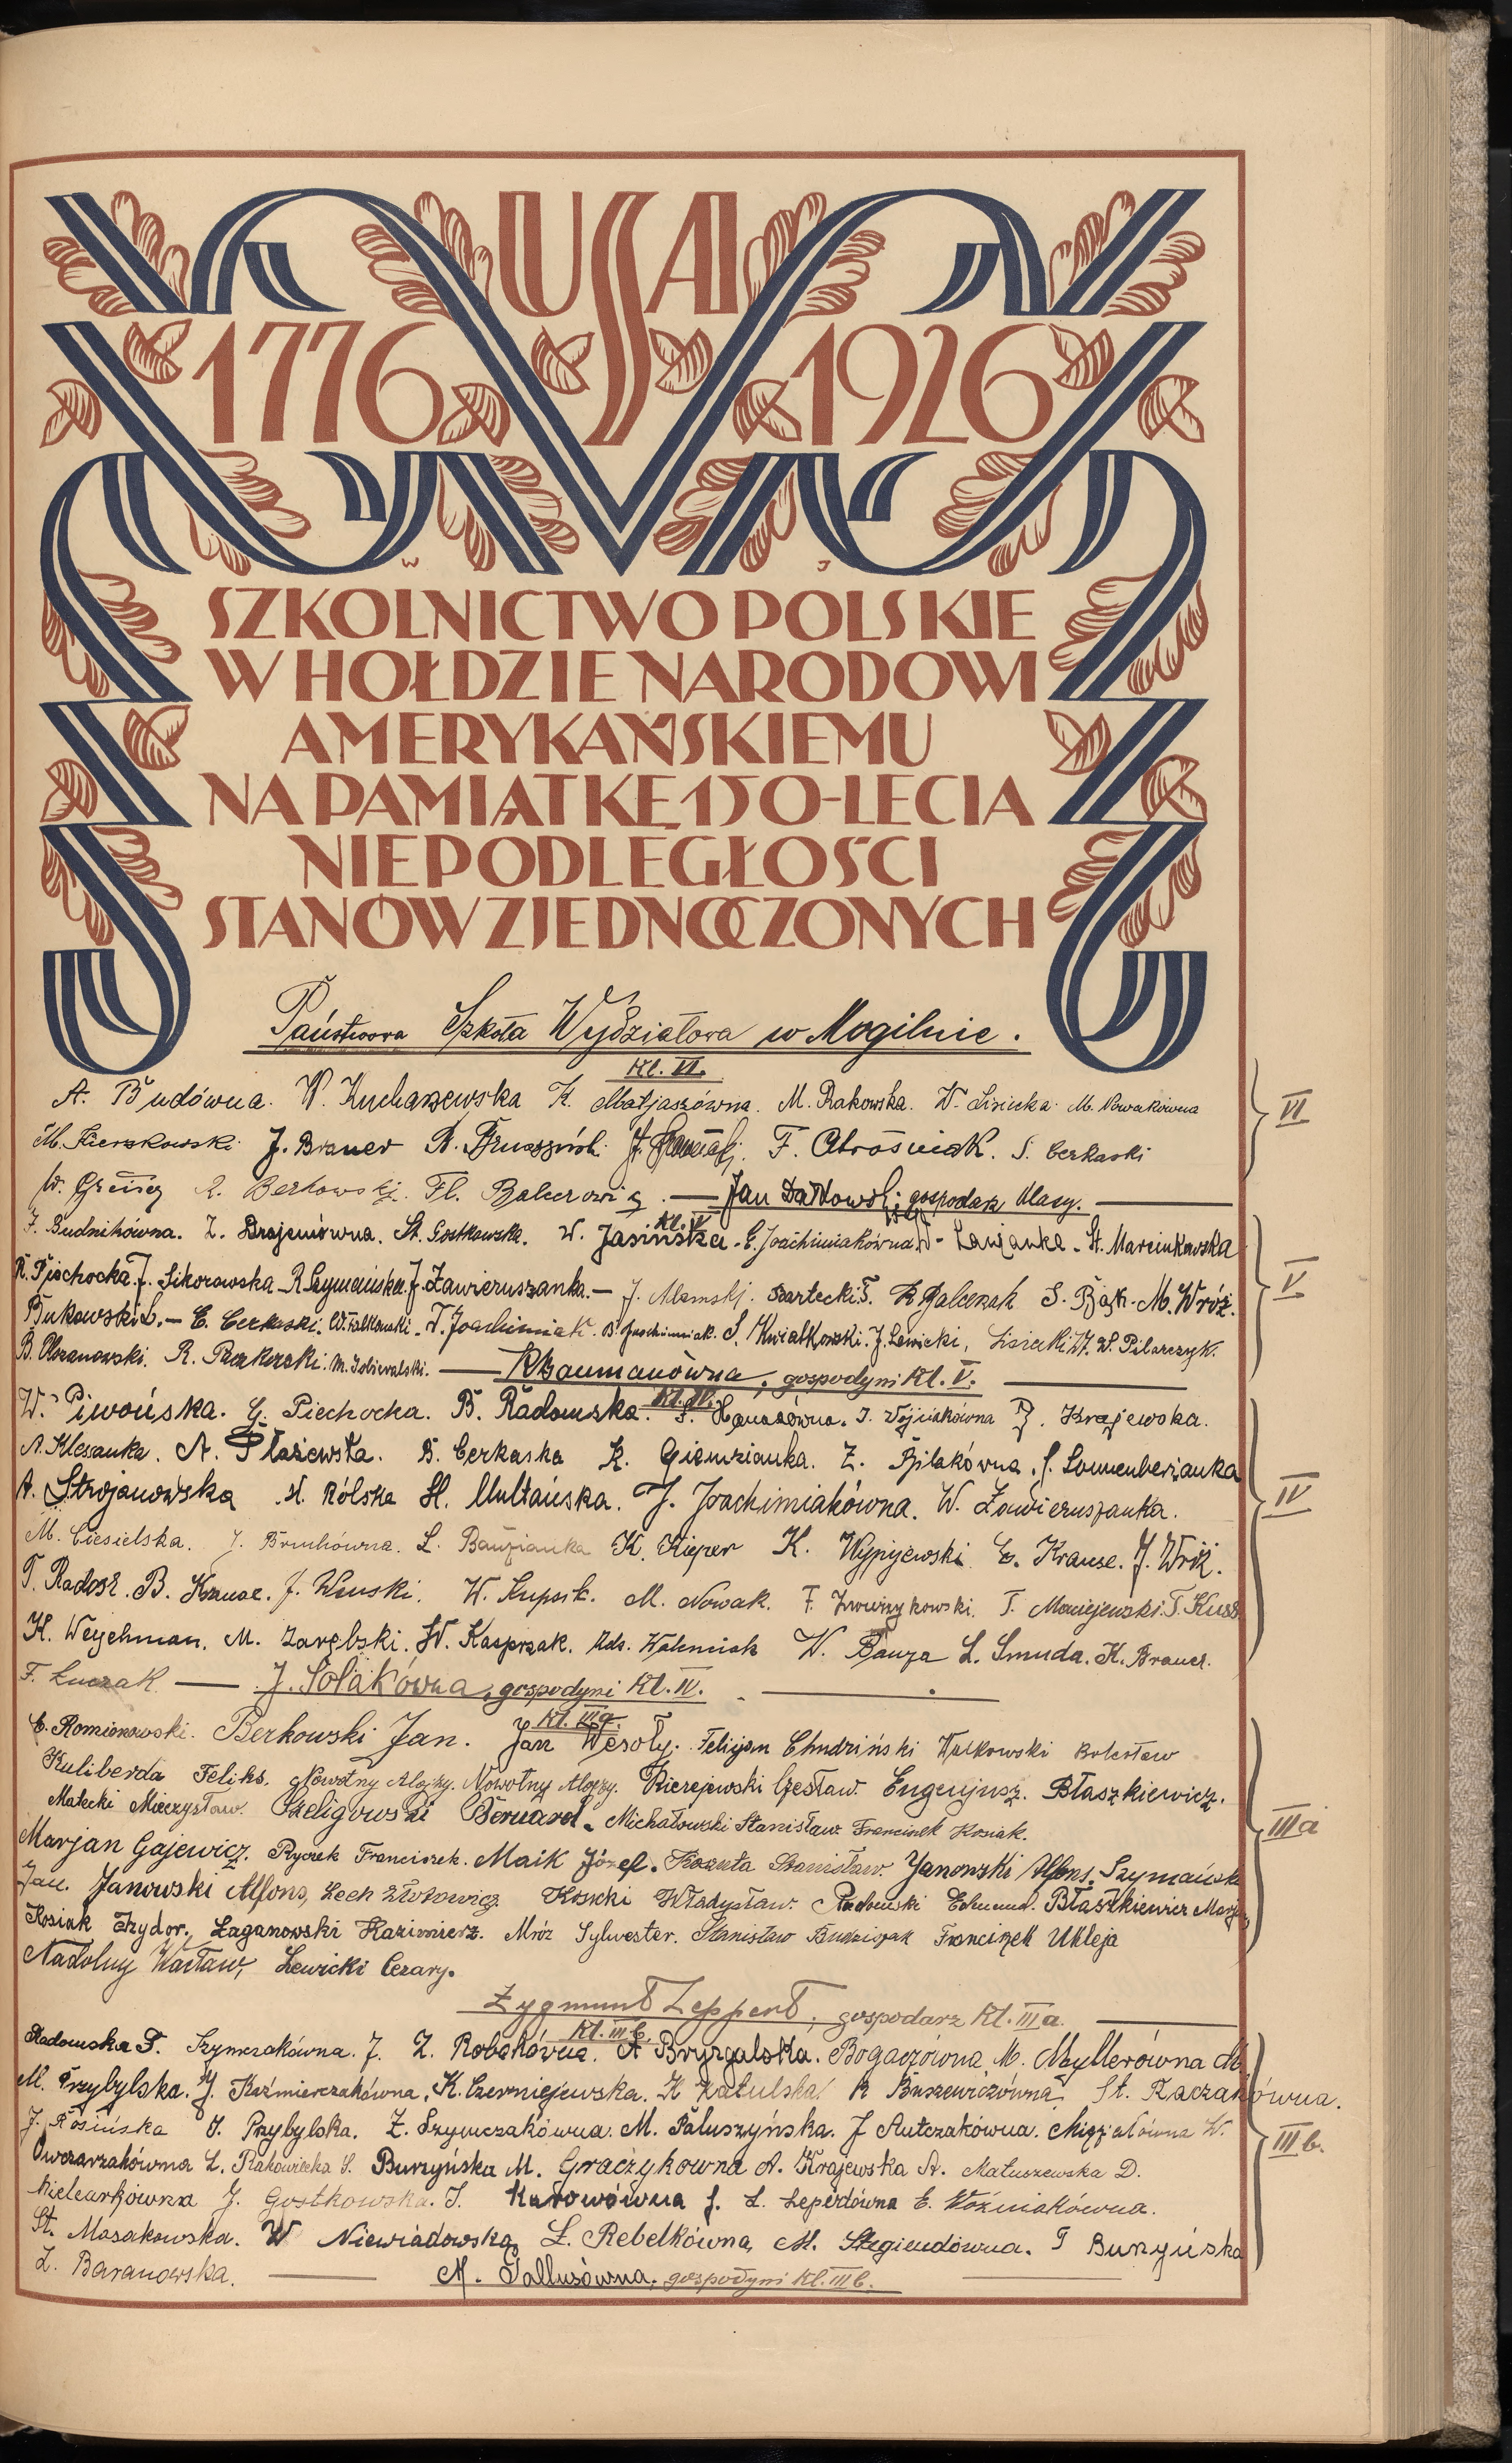 USA
1776 1926
W J
SZKOLNICTWO POLSKIE
W HOŁDZIE NARODOWI
AMERYKAŃSKIEMU
NA PAMIĄTKĘ 150-LECIA
NIEPODLEGŁOŚCI
STANÓW ZJEDNOCZONYCH
Państwowa Szkoła Wydziałowa w Mogilnie.
Kl. VI.
A. Budówna. W. Kucharzewska K. Matjaszówna. M. Rakowska. W. Lisiecka. M. Nowakówna
VI
M. Sierzkowski J. Brauer B. F. Obrośniak. S. Cerkaski
W. A. Berkowski. Fl. Balcerowiz. — Jan gospodarz klasy. —
Kl. V
J. Budnikówna. Z. Drajemówna. St. Gostkowska. W. Jasińska. G. Joachimiakówna. St. Marcinkowska
R. Piechocka. J. Sikorowska. R. Szymańska. J. Zawieruszanka. — J. Adamski. Bartecki F. R. Balcerak S. Bąk. M. Wróż.
V.
Bukowski L. — C. Cerkaski. W. Falkowski. W. Joachimiak. B. Joachimiak. S. Kwiatkowski. J. Lewicki, Lisiecki W. W. Pilarczyk.
B. Ploranowski. R. M. — R. Baumanówna, gospodyni Kl. V. —
Kl. IV.
W. Piwońska. G. Piechocka. B. Radomska. S. Hanasówna. I. Wójciakówna J. Krajewska.
A. Klesanka. A. Płażewska. B. Cerkaska K. Giemzianka. Z. Bilakówna. J. Sonnenberżanka
A. Strojanowska M. Rólska H. Multańska. J. Joachimiakówna. W. Zawieruszanka.
IV
M. Ciesielska. J. Bruchówna. L. Bauzianka K. Kieper K. Wypijewski E. Krause. J. Wróż.
T. Radosz. B. Krause. J. Wenski. W. Kupsik. M. Nowak. F. T. Maciejewski. T. Kusz
K. Weychman. M. Zarębski. W. Kasprzak. Walenciak W. Bauza L. Smuda. K. Brauer.
F. Łuczak — J. Solakówna, gospodyni Kl. IV. —
Kl. IIIa.
C. Romianowski. Berkowski Jan. Jan Wesoły. Felicjan Chudziński Wałkowski Bolesław
Kuliberda Feliks. Nowotny Alojzy. Nowotny Alojzy. Kierejewski Czesław. Eugenjusz. Błaszkiewicz.
Małecki Mieczysław. Szeligowski Bernard. Michałowski Stanisław. Franciszek Kosiak.
IIIa
Marjan Gajewicz. Ryczek Franciszek. Maik Józef. Koszuta Stanisław. Janowski Alfons. Szymański
Jan. Janowski Alfons, Lech Złotowicz. Kosicki Władysław. Radomski Edmund. Błaszkiewicz Marjan
Kosiak Izydor. Łaganowski Kazimierz. Mróz Sylwester. Stanisław Budziszak Franciszek Ukleja
Nadolny Wacław, Lewicki Cezary.
Zygmunt Leppert, gospodarz Kl. IIIa. —
Kl. IIIb.
Radomska P. Szymczakówna. J. Z. Robakówna. A Bryzgalska. Bogaczówna M. Myllerówna M.
M. Przybylska. J. Kaźmierczakówna. K. Czerniejewska. K Katulska R Buszewiczówna St. Kaczakówna.
J. Rosińska J. Przybylska. Z. Szymczakówna. M. Paluszyńska. J Antczakówna. Migzałówna W.
IIIb.
Owczarzakówna L. Rakowiecka S. Burzyńska M. Graczykówna A. Krajewska A. Matuszewska D.
Kielcarkówna J. Gostkowska. I. Karowówna J. L. Leperdówna E. Woźniakówna.
St. Masakowska. W Niewiadowska, Ł. Rebelkówna, M. Stegiendówna. I Burzyńska
Z. Baranowska. — M. Pallusówna. gospodyni Kl. IIIb. —